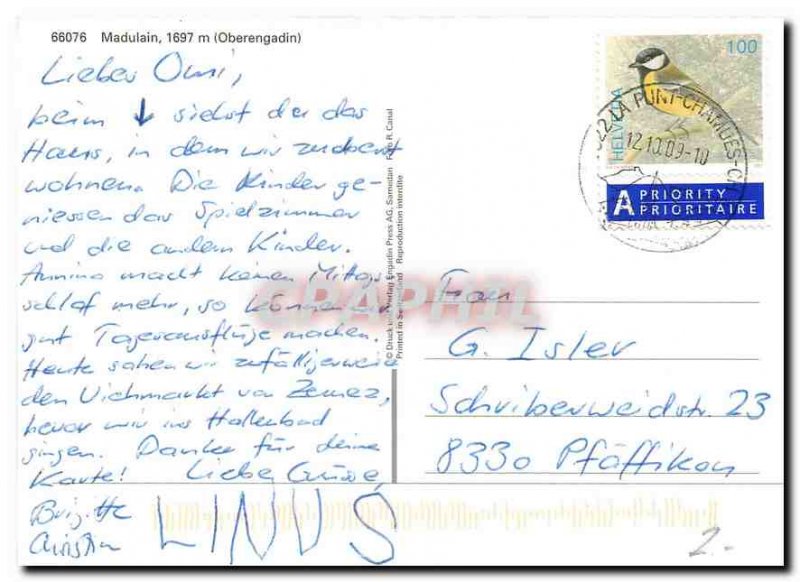 66076 Madulain, 1697 m (Oberengadin)
Liebes Omi,
beim ↓ siehst der das
Haus, in dem wir zuoberst
wohnen. Die Kinder ge-
niessen das Spielzimmer
und die andern Kinder.
Annina macht keinen Mittags-
schlaf mehr, so können wir
gut Tagesausflüge machen.
Heute sahen wir zufälligerweise
den Viehmarkt von Zernez,
bevor wir ins Hallenbad
gingen. Danke für deine
Karte! Liebe Grüsse,
Brigitte
Christian
LINUS
© Druck und Verlag Engadin Press AG, Samedan Foto R. Canal
Printed in Switzerland Reproduction interdite
GRAPHIL
100
HELVETIA
LA PUNT-CHAMUES-CH
12.10.09-10
A PRIORITY
PRIORITAIRE
Frau
G. Isler
Schriberweidstr. 23
8330 Pfäffikon
2.-